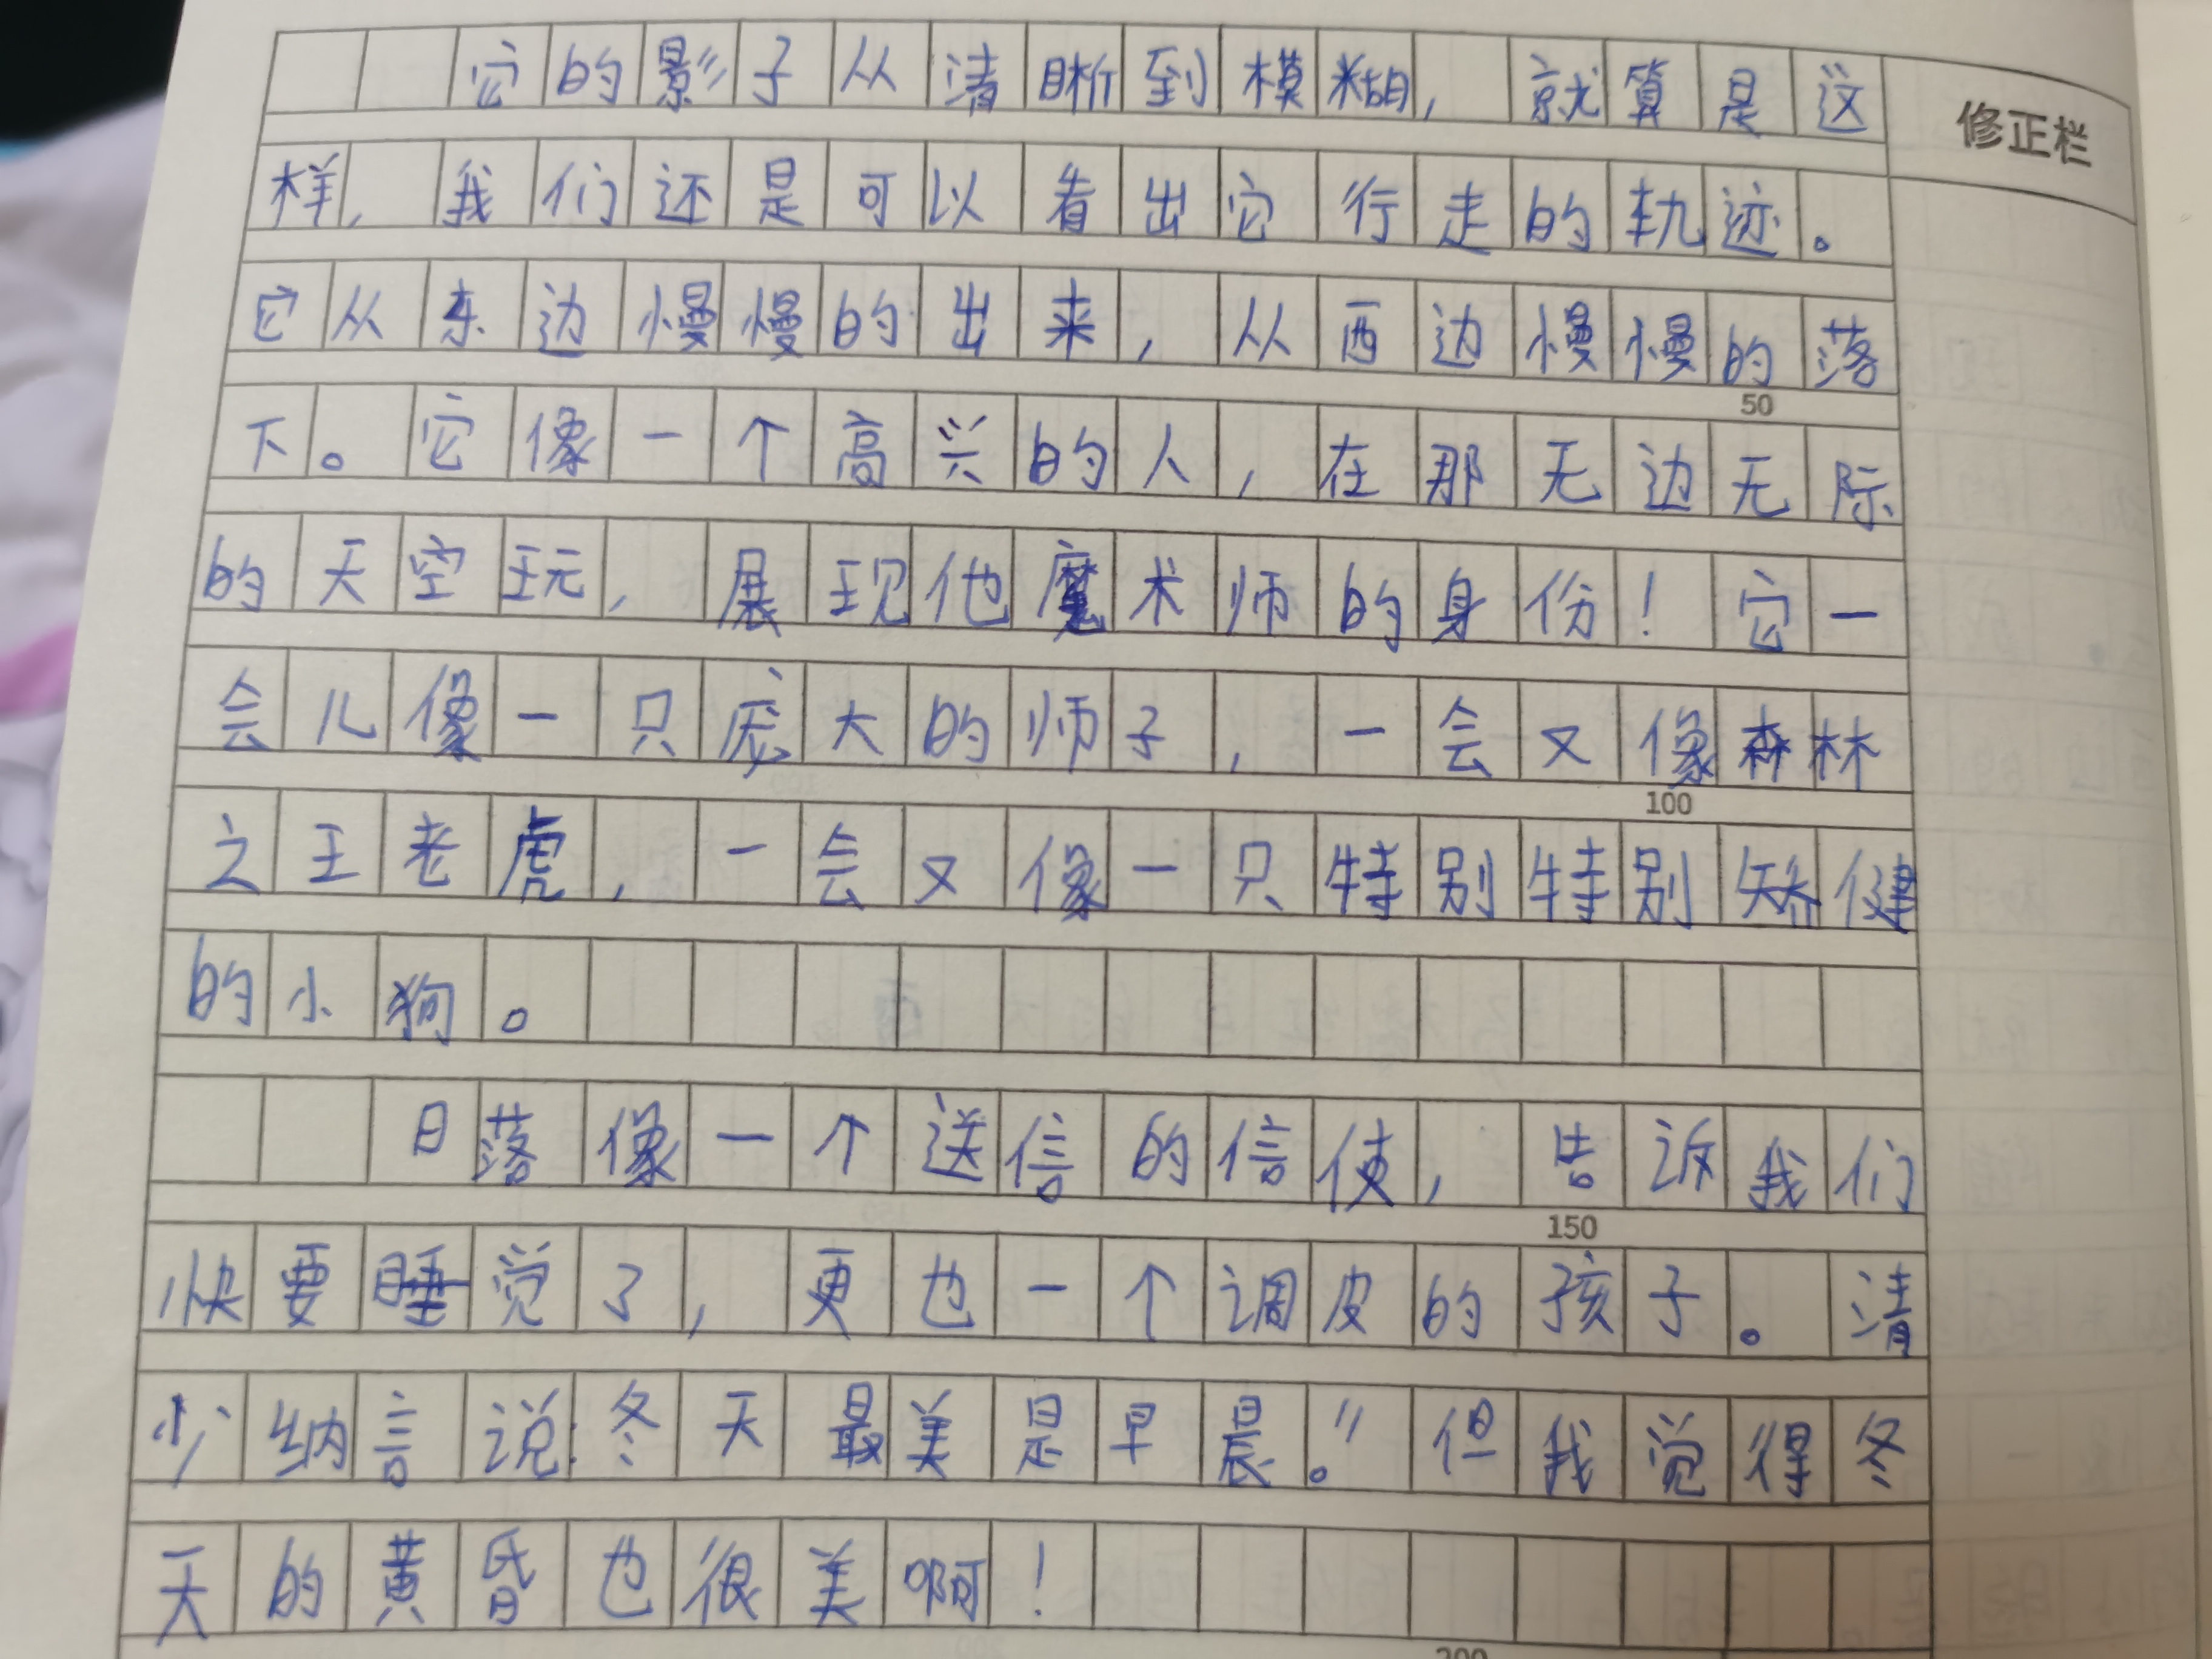 它的影子从清晰到模糊，就算是这
修正栏
样，我们还是可以看出它行走的轨迹。
它从东边慢慢的出来，从西边慢慢的落
50
下。它像一个高兴的人，在那无边无际
的天空玩，展现他魔术师的身份！它一
会儿像一只庞大的师子，一会又像森林
100
之王老虎，一会又像一只特别特别矫健
的小狗。
日落像一个送信的信使，告诉我们
150
快要睡觉了，更也一个调皮的孩子。清
少纳言说:冬天最美是早晨。”但我觉得冬
天的黄昏也很美啊！
200